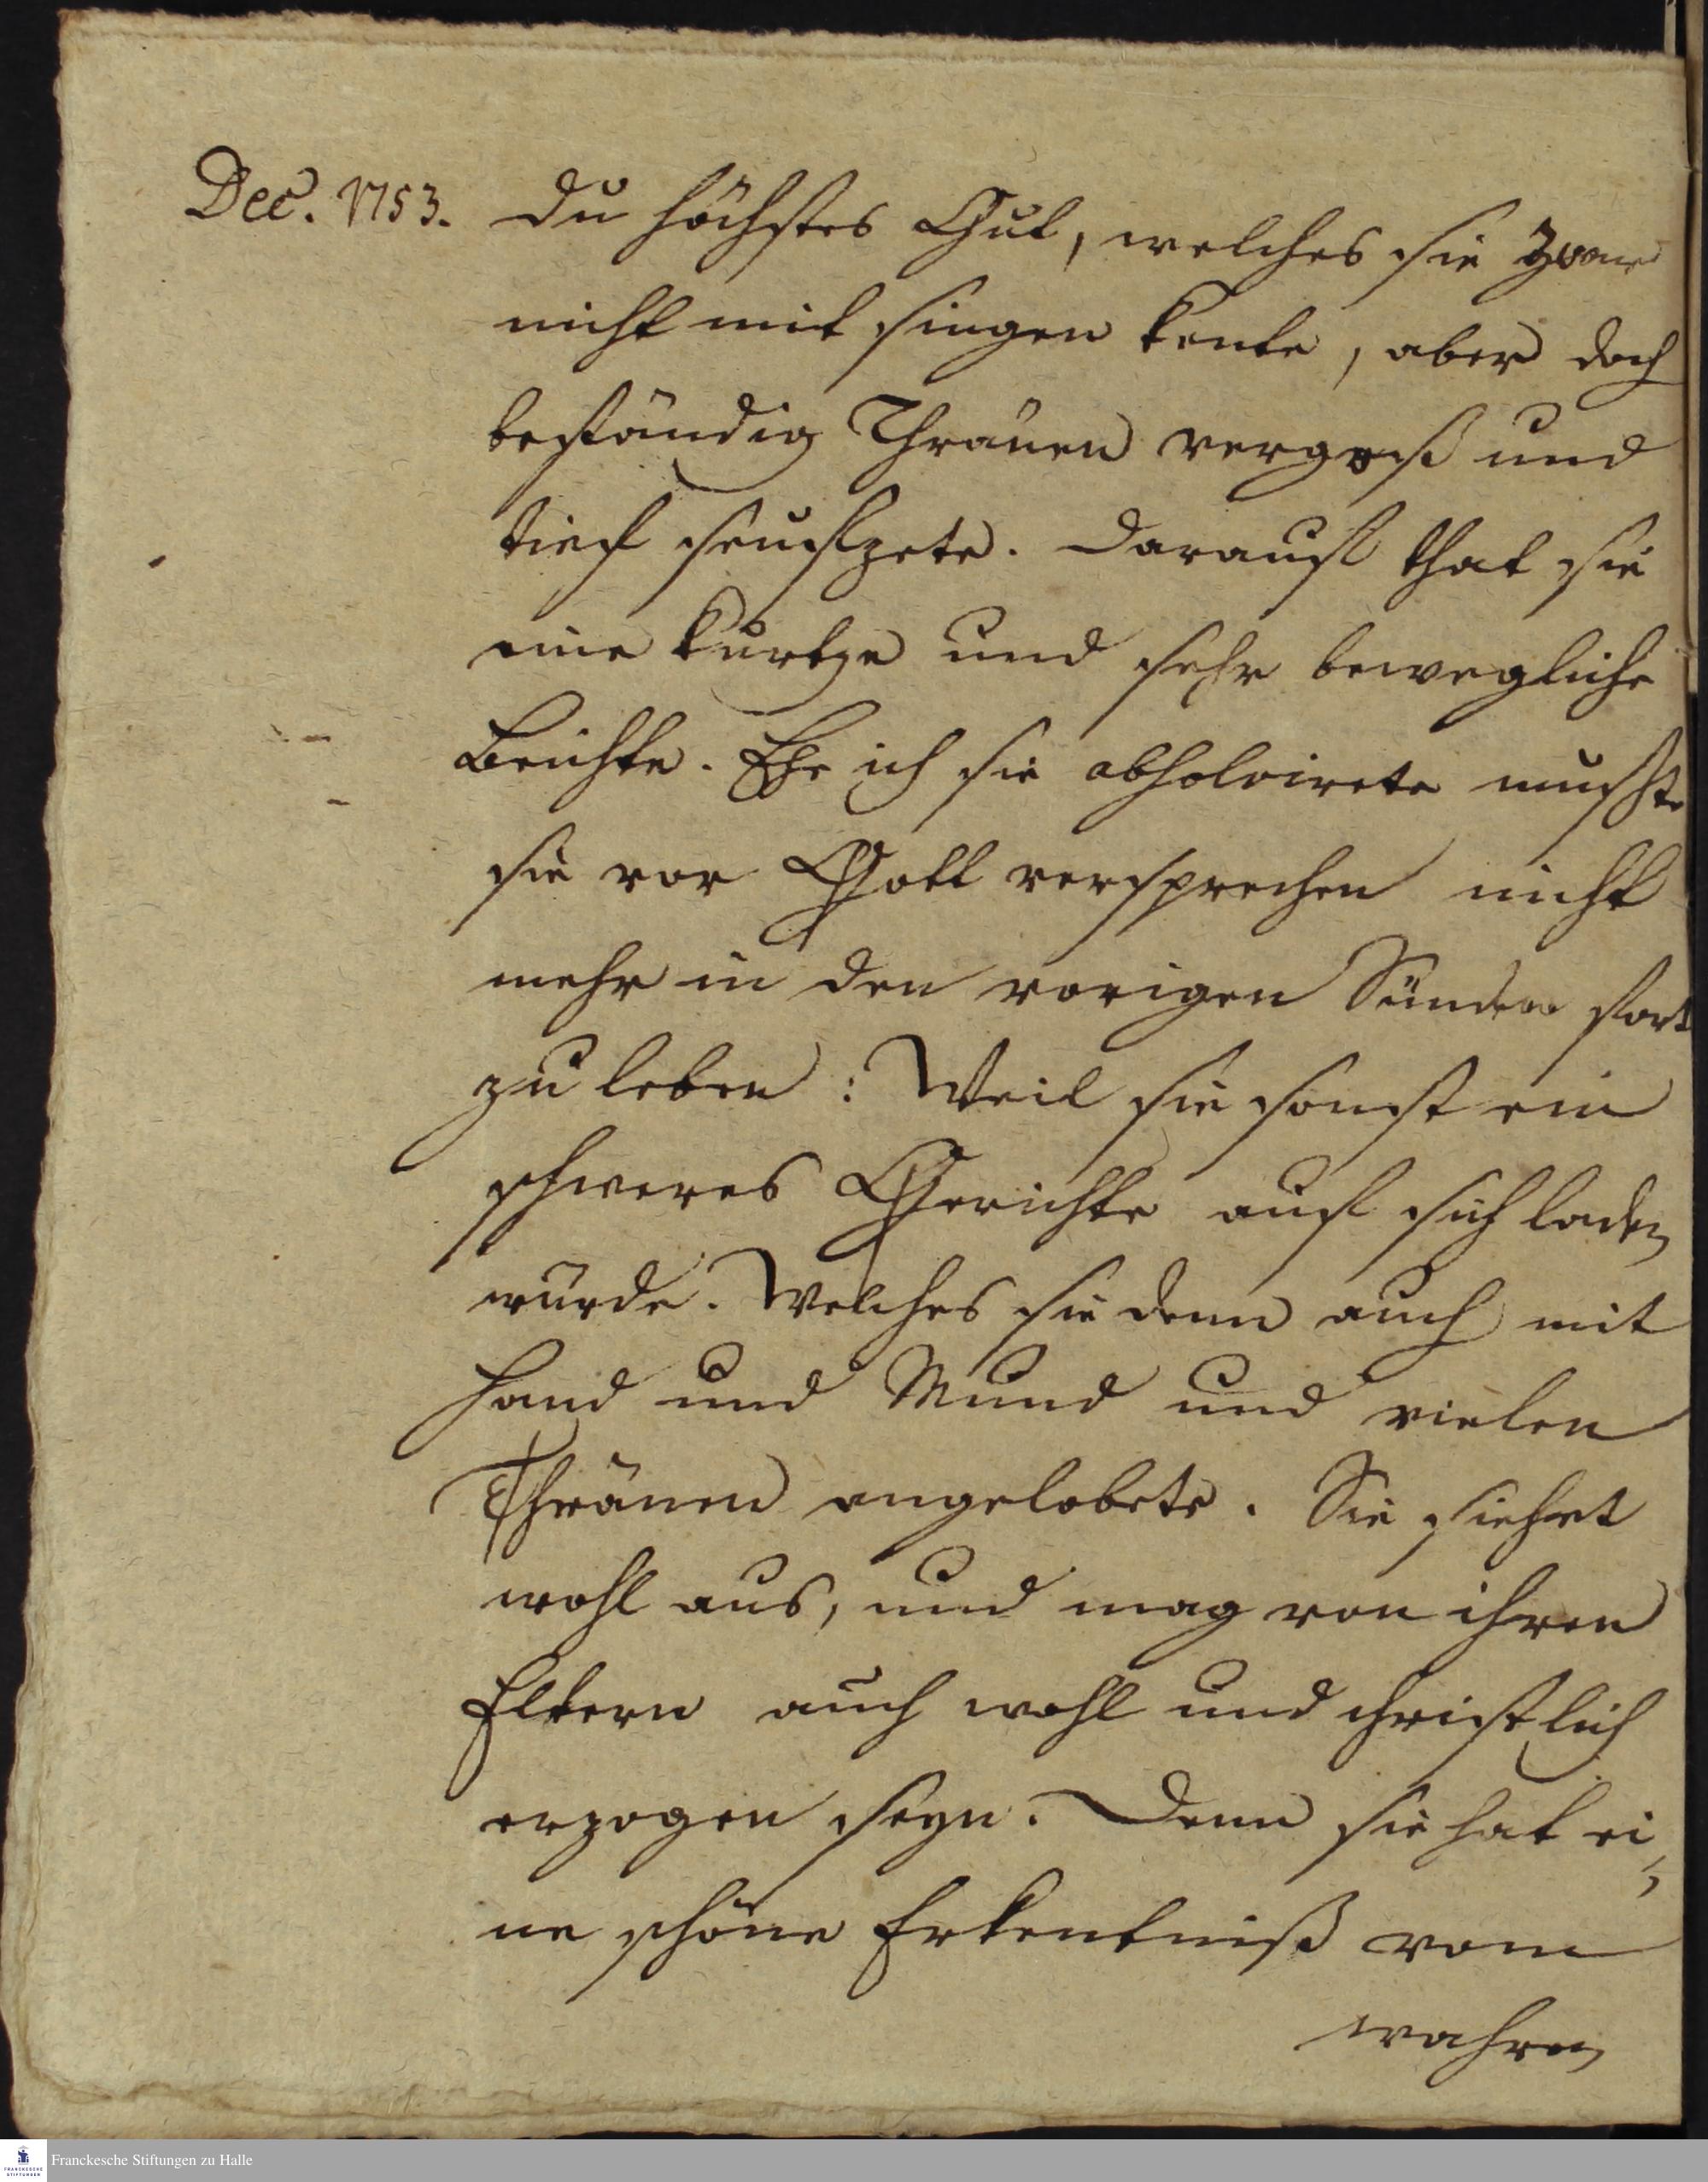 Dec. 1753. du höchstes Gut, welches sie zwar
nicht mit singen konte, aber doch
beständig Thränen vergoß und
tief seufzete. Darauf that sie
eine kurtze und sehr bewegliche
Beichte. Ehe ich sie absolvirete mußte
sie vor Gott versprechen nicht
mehr in den vorigen Sünden fort
zu leben: Weil sie sonst ein
schweres Gerichte auf sich laden
würde. Welches sie denn auch mit
Hand und Mund und vielen
Thränen angelobete. Sie siehet
wohl aus, und mag von ihren
Eltern auch wohl und christlich
erzogen seyn. Denn sie hat ei-
ne schöne Erkentniß vom
wahren
Franckesche Stiftungen zu Halle